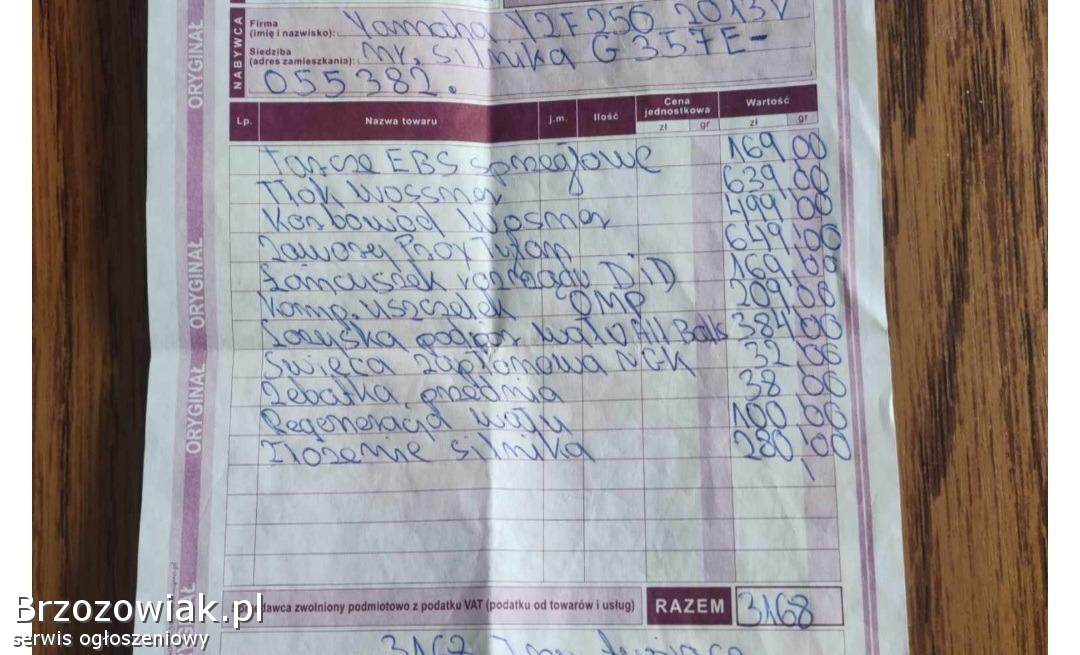 ORYGINAŁ
ORYGINAŁ
ORYGINAŁ
NABYWCA
Firma
(imię i nazwisko): Yamaha YZF 250 2013r
Siedziba
(adres zamieszkania): nr. silnika G 357E-
055382.
Lp. Nazwa towaru j.m. Ilość Cena jednostkowa Wartość
zł gr zł gr
Tarcze EBS sprzęgłowe 169,00
Tłok Wossner 639,00
Korbowód Wosner 499,00
Zawory ProX Tytan 649,00
Łańcuszek rozrządu DiD 169,00
Komp. uszczelek OMP 209,00
Łożyska podpor wału All Balls 384,00
Świeca zapłonowa NGK 32,00
Zębatka przednia 38,00
Regeneracja wału 100,00
Złożenie silnika 280,00
dawca zwolniony podmiotowo z podatku VAT (podatku od towarów i usług) RAZEM 3168
Brzozowiak.pl
serwis ogłoszeniowy